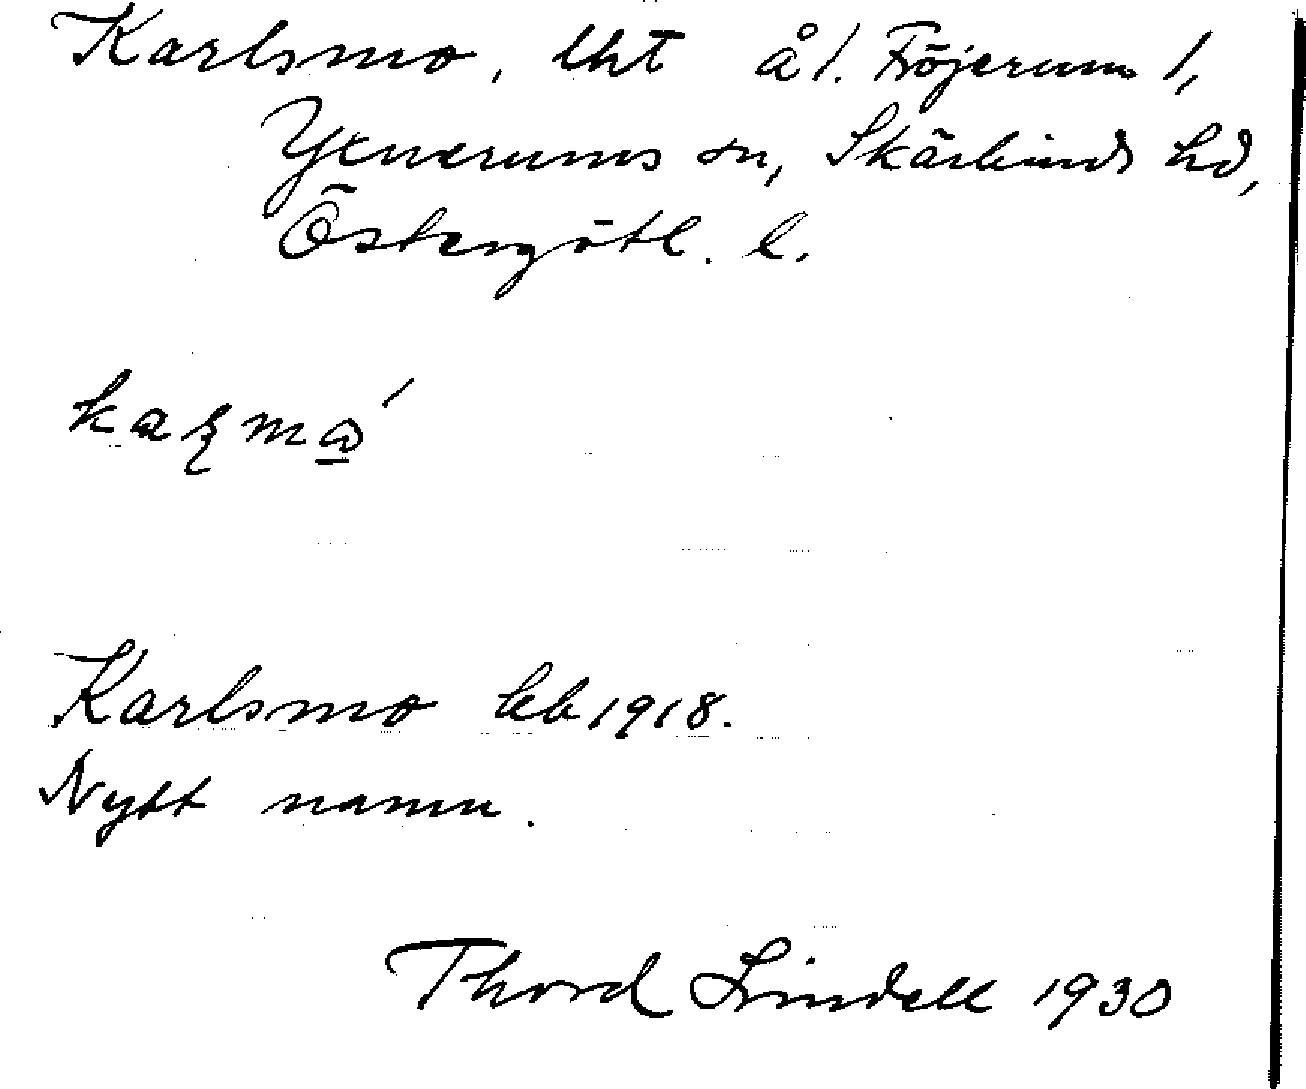 Karlsmo, lht å 1. Fröjerum 1,
Yxnerums sn, Skärkinds hd,
Östergötl. l.
Karlsmo leb 1918.
Nytt namn.
Thord Lindell 1930